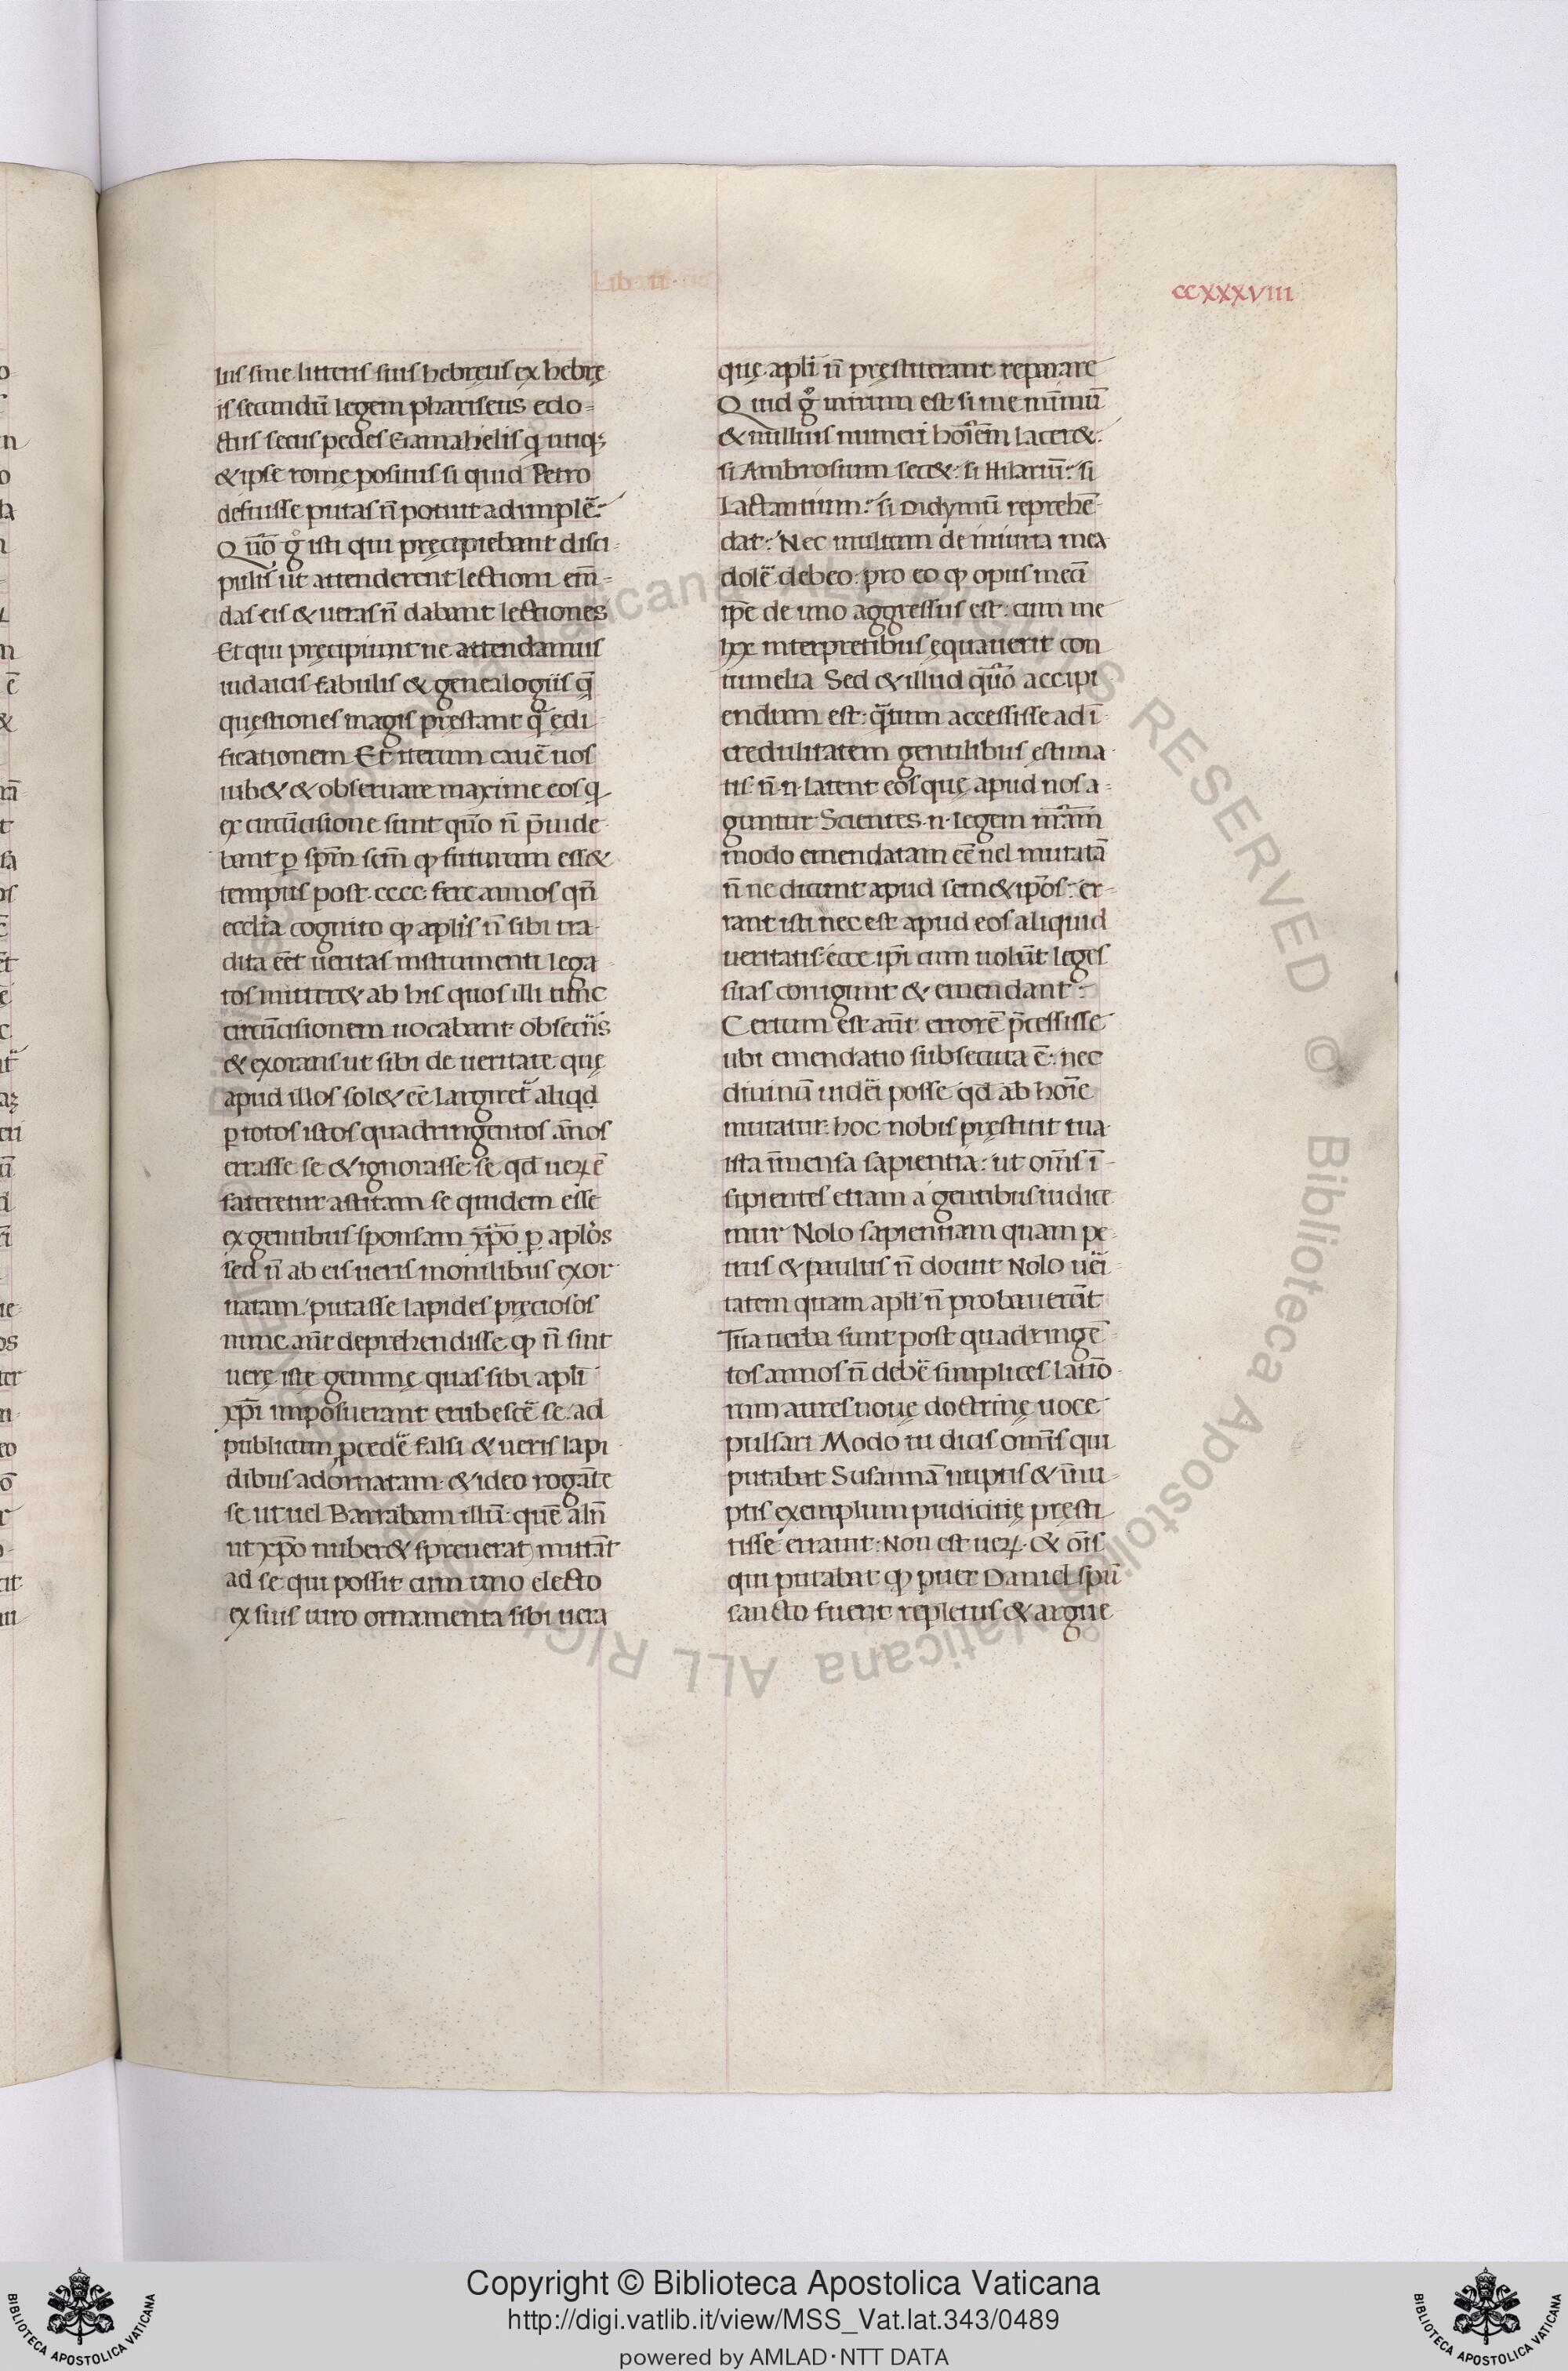 Lib. ii.
ccxxxviii
lus sine litteris suis hebręus ex hebrę
is secundū legem phariseus edo-
ctus secus pedes Gamahelis q̨ utiqꝫ
& ipse romę positus si quid Petro
defuisse putas n̄ potuit adimplē.
Quō g̊ isti qui pręcipiebant disci-
pulis ut attenderent lectioni em̄-
das eis & ueras n̄ dabant lectiones
Et qui pręcipiunt ne attendamus
iudaicis fabulis & genealogiis q̄
questiones magis pręstant q̄ ędi-
ficationem Et iterum cauē uos
iub& & obseruare maxime eos q̨
ex circūcisione sunt quō n̄ p̄uide-
bant ꝑ sp̄m sc̄m ꝙ futurum ess&
tempus post .cccc. fere annos qn̄
ecclīa cognito ꝙ aplīs n̄ sibi tra-
dita eēt ueritas instrumenti lega-
tos mitter& ab his quos illi tunc
circūcisionem uocabant obsecr̄s
& exorans ut sibi de ueritate quę
apud illos sol& eē largiret̄ aliqd̨
ꝑ totos istos quadringentos ān̄os
errasse se & ignorasse se qd̄ ueꝝ ē
fateretur ascitam se quidem esse
ex gentibus sponsam xp̄o ꝑ aplōs
sed n̄ ab eis ueris monilibus exor-
natam. putasse lapides pręciosos
nunc aūt deprehendisse ꝙ n̄ sint
uerę istę gemmę quas sibi aplī
xp̄i imposuerant erubescē se ad
publicum ꝓcedē falsi & ueris lapi-
dibus adornatam. & ideo rogāte
se ut uel Barrabam illū quē alīn
ut xp̄o nuber& spreuerat mittāt
ad se qui possit cum uno electo
ex suis uiro ornamenta sibi uera
quę aplī n̄ pręstiterant reparare
Quid g̊ mirum est si me minīmū
& nullius numeri hoīem lacer&:
si Ambrosium sec&: si Hilariū: si
Lactantium: si Didymū reprehē-
dat: Nec multum de iniuria mea
dolē debeo: pro eo ꝙ opus meū
ip̄e de uno aggressus est: cum me
lxx interpretibus ęquauerit con-
tumelia Sed & illud quōmō accipi-
endum est: q̄tum accessisse ad ī-
credulitatem gentilibus ęstima-
tis. n̄ .n. latent eos quę apud nos a-
guntur Scientes .n. legem nrām
modo emendatam eē uel mutatā
n̄ ne dicunt apud sem&ip̄os: er-
rant isti nec est apud eos aliquid
ueritatis: ecce ip̄i cum uolūt leges
suas corrigunt & emendant:
Certum est aūt errorē p̄cessisse
ubi emendatio subsecuta ē: nec
diuinū uidēi posse qd̄ ab hoīe
mutatur: hoc nobis pręstitit tua
ista īmensa sapientia: ut om̄s ī-
sipientes etiam a gentibus iudice-
mur Nolo sapientiam quam pe-
trus & paulus n̄ docuit Nolo uēi-
tatem quam aplī n̄ probauerūt
Tua uerba sunt post quadringē-
tos annos n̄ debē simplices latiō-
rum aures nouę doctrinę uoce
pulsari Modo tu dicis omīs qui
putabat Susannā nuptis & īnu-
ptis exemplum pudicitię pręsti-
tisse errauit: Non est ueꝝ. & oīs
qui putabat ꝙ puer Daniel spū
sancto fuerit repletus & argue-
Copyright © Biblioteca Apostolica Vaticana
http://digi.vatlib.it/view/MSS_Vat.lat.343/0489
powered by AMLAD·NTT DATA